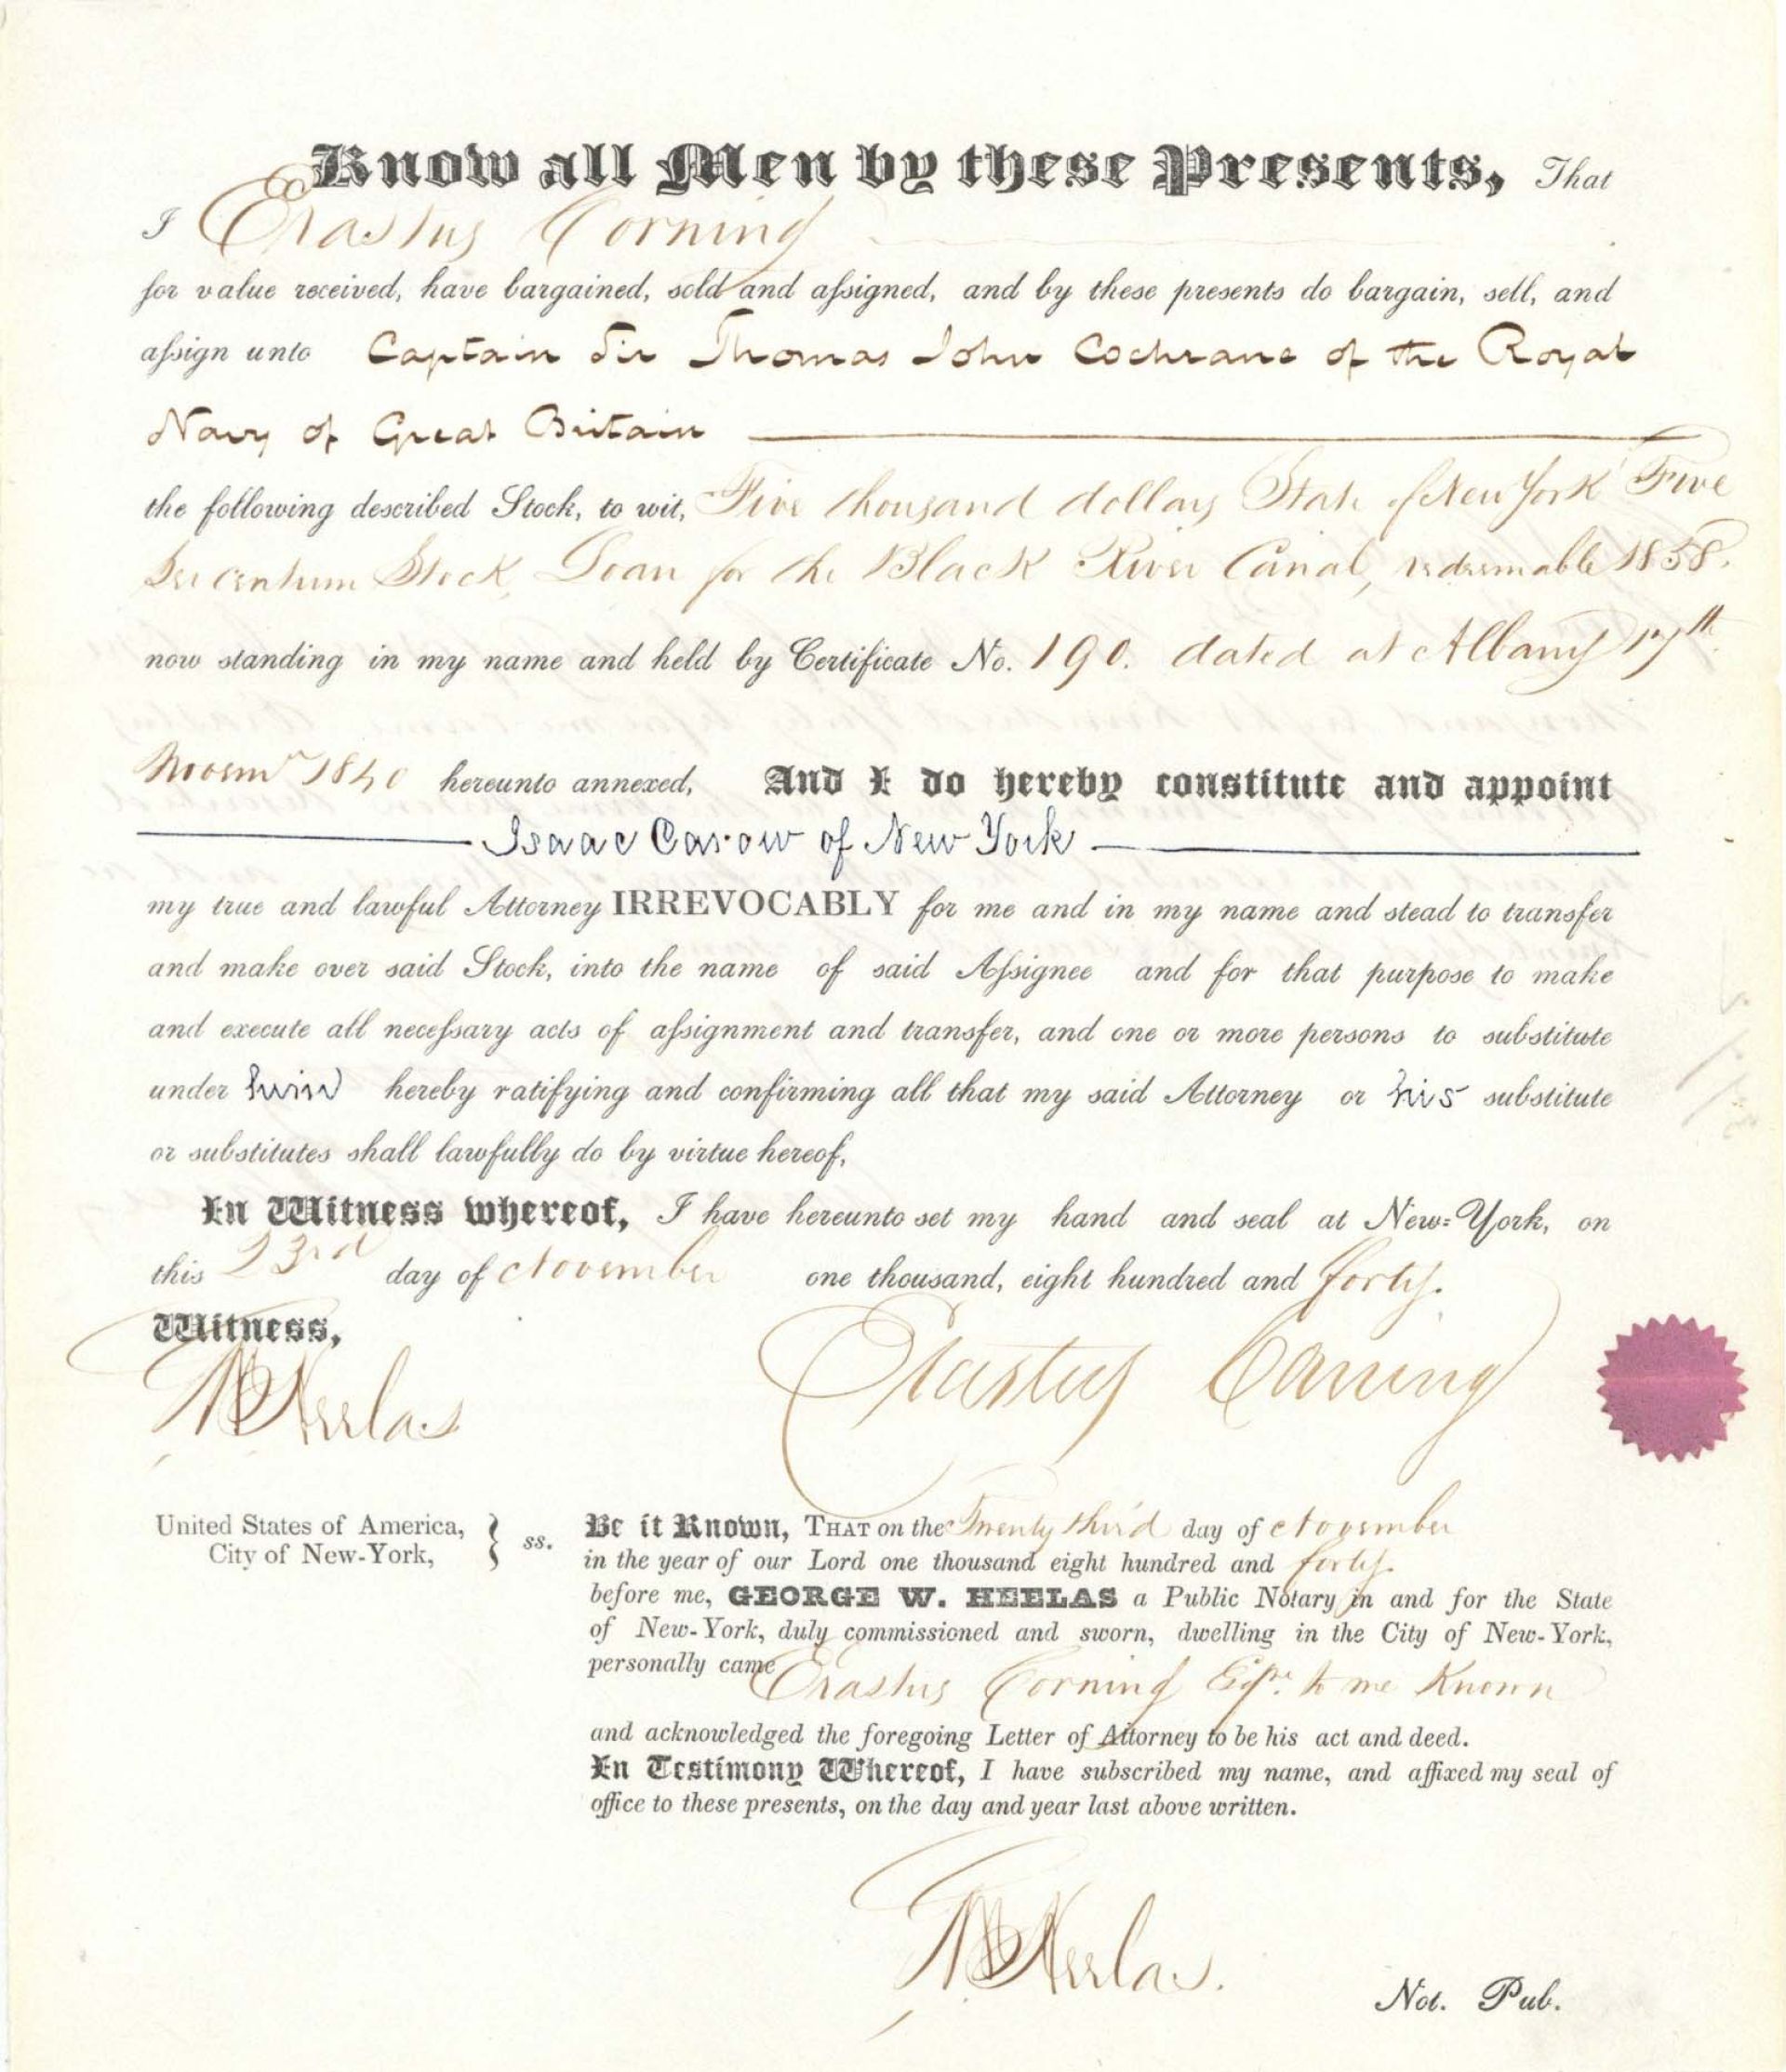 Know all Men by these Presents, That
I Erastus Corning
for value received, have bargained, sold and assigned, and by these presents do bargain, sell, and
assign unto Captain Sir Thomas John Cochrane of the Royal
Navy of Great Britain
the following described Stock, to wit, Five thousand dollars State of New York Five
Per centum Stock, Loan for the Black River Canal, redeemable 1858.
now standing in my name and held by Certificate No. 190. dated at Albany 17th
Novemr 1840 hereunto annexed, And I do hereby constitute and appoint
Isaac Carow of New York
my true and lawful Attorney IRREVOCABLY for me and in my name and stead to transfer
and make over said Stock, into the name of said Assignee and for that purpose to make
and execute all necessary acts of assignment and transfer, and one or more persons to substitute
under him hereby ratifying and confirming all that my said Attorney or his substitute
or substitutes shall lawfully do by virtue hereof,
In Witness whereof, I have hereunto set my hand and seal at New=York, on
this 23rd day of November one thousand, eight hundred and forty.
Witness,
Erastus Corning
GWHeelas
United States of America,
City of New-York,
} ss.
Be it Known, THAT on the Twenty third day of November
in the year of our Lord one thousand eight hundred and forty.
before me, GEORGE W. HEELAS a Public Notary in and for the State
of New-York, duly commissioned and sworn, dwelling in the City of New-York,
personally came Erastus Corning Esqr. to me Known
and acknowledged the foregoing Letter of Attorney to be his act and deed.
In Testimony Whereof, I have subscribed my name, and affixed my seal of
office to these presents, on the day and year last above written.
GWHeelas.
Not. Pub.